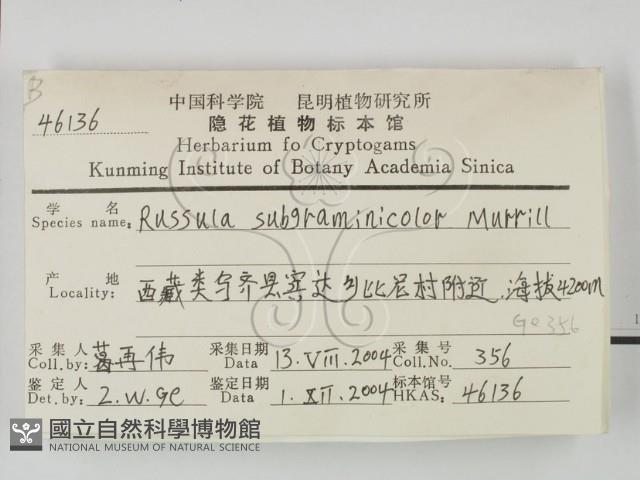 B
46136
中国科学院 昆明植物研究所
隐花植物标本馆
Herbarium fo Cryptogams
Kunming Institute of Botany Academia Sinica
学 名
Species name: Russula subgraminicolor Murrill
产 地
Locality: 西藏类乌齐县宾达乡比尼村附近.海拔4200m
Ge 356
采集人 葛再伟 采集日期 13.VIII.2004 采集号 356
Coll.by: Data Coll.No.
鉴定人 Z.W.Ge 鉴定日期 1.XII.2004 标本馆号 46136
Det.by: Data HKAS:
國立自然科學博物館
NATIONAL MUSEUM OF NATURAL SCIENCE